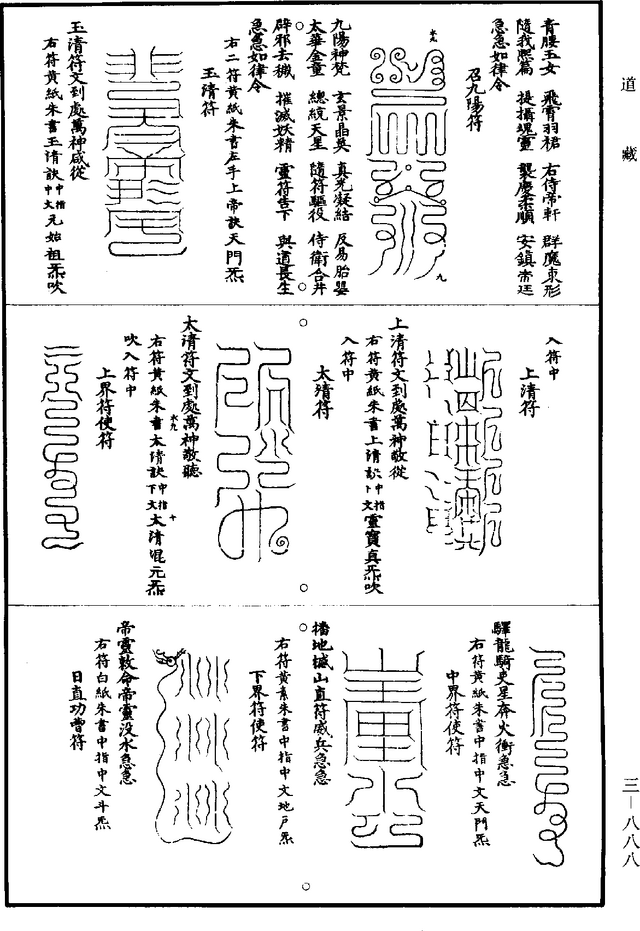 道藏
青腰玉女　飛霄羽裙　右侍帝軒　群魔束形
隨我熙篇　提攝魂靈　襲慶柔順　安鎮帝廷
急急如律令
召九陽符
九陽神梵　玄景晶英　真炁凝結　反易胎嬰
太華金童　總統天星　隨符驅役　侍衛合并
辟邪去穢　摧滅妖精　靈符告下　與道長生
急急如律令
右二符黃紙朱書左手上帝訣天門炁
玉清符
玉清符文到處萬神咸從
右符黃紙朱書玉清訣中指中文元始祖炁吹
入符中
上清符
上清符文到處萬神敬從
右符黃紙朱書上清訣中指卜文靈寶真炁吹
入符中
太清符
太清符文到處萬神敬聽
右符黃紙朱書太清訣中指下文太清混元炁
吹入符中
上界符使符
驛龍騎吏星奔火衝急急
右符黃紙朱書中指中文天門炁
中界符使符
擂地撼山直符威兵急急
右符黃素朱書中指中文地戶炁
下界符使符
帝靈敕命帝靈沒水急急
右符白紙朱書中指中文斗炁
日直功曹符
三—八八八